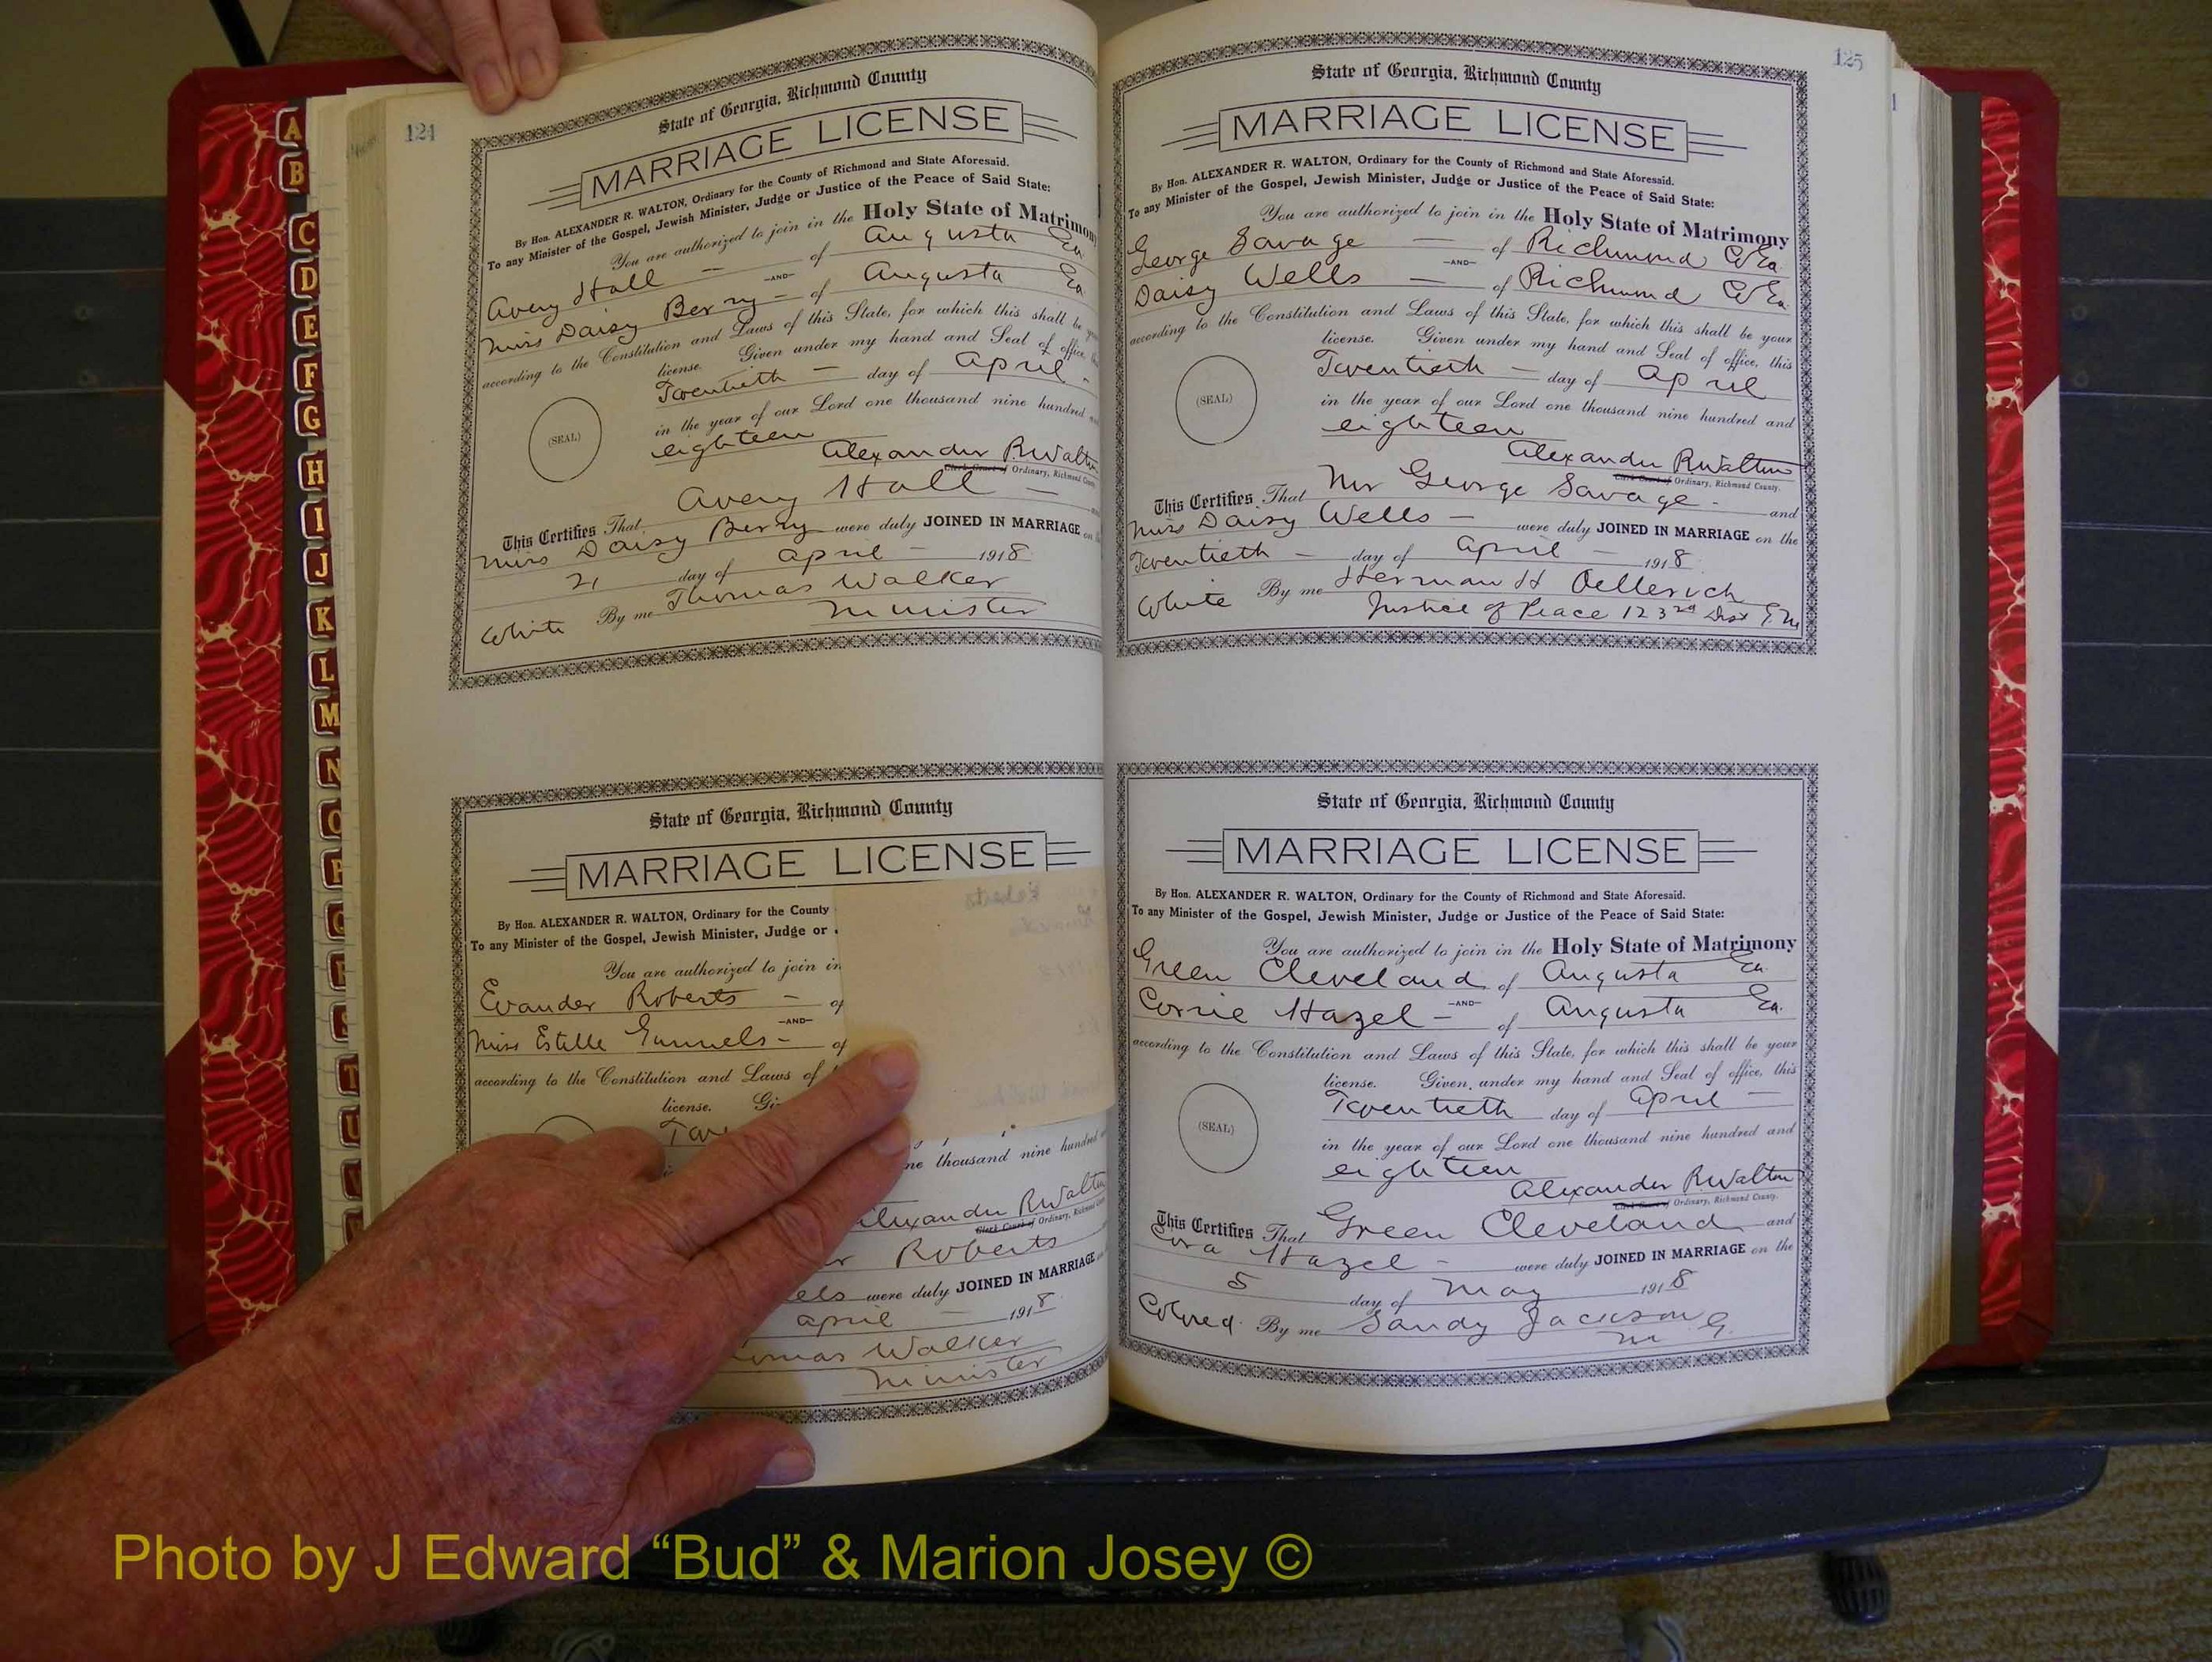 124
State of Georgia, Richmond County
MARRIAGE LICENSE
By Hon. ALEXANDER R. WALTON, Ordinary for the County of Richmond and State Aforesaid.
To any Minister of the Gospel, Jewish Minister, Judge or Justice of the Peace of Said State:
You are authorized to join in the Holy State of Matrimony
Avery Hall — of Augusta Ga
—AND—
Miss Daisy Berry — of Augusta Ga
according to the Constitution and Laws of this State, for which this shall be
license. Given under my hand and Seal of office,
Twentieth — day of April -
(SEAL)
in the year of our Lord one thousand nine hundred
eighteen
Alexander R Walton
Clerk Court of Ordinary, Richmond County.
This Certifies That Avery Hall —
Miss Daisy Berry were duly JOINED IN MARRIAGE on
21 day of April — 1918
White By me Thomas Walker
Minister
State of Georgia, Richmond County
MARRIAGE LICENSE
By Hon. ALEXANDER R. WALTON, Ordinary for the County
To any Minister of the Gospel, Jewish Minister, Judge or
You are authorized to join in
Evander Roberts — of
—AND—
Miss Estelle Gunnels - of
according to the Constitution and Laws of
license.
thousand nine hundred
Alexander R Walton
Clerk Court of Ordinary, Richmond
Roberts
were duly JOINED IN MARRIAGE
April — 1918
Walker
Minister
125
State of Georgia, Richmond County
MARRIAGE LICENSE
By Hon. ALEXANDER R. WALTON, Ordinary for the County of Richmond and State Aforesaid.
To any Minister of the Gospel, Jewish Minister, Judge or Justice of the Peace of Said State:
You are authorized to join in the Holy State of Matrimony
George Savage — of Richmond Co Ga.
—AND—
Daisy Wells — of Richmond Co Ga.
according to the Constitution and Laws of this State, for which this shall be your
license. Given under my hand and Seal of office, this
Twentieth — day of April
(SEAL)
in the year of our Lord one thousand nine hundred and
eighteen
Alexander R Walton
Clerk Court of Ordinary, Richmond County.
This Certifies That Mr George Savage - and
Miss Daisy Wells — were duly JOINED IN MARRIAGE on the
Twentieth — day of April — 1918
White By me Herman H Oellerich
Justice of Peace 123rd Dist G.M
State of Georgia, Richmond County
MARRIAGE LICENSE
By Hon. ALEXANDER R. WALTON, Ordinary for the County of Richmond and State Aforesaid.
To any Minister of the Gospel, Jewish Minister, Judge or Justice of the Peace of Said State:
You are authorized to join in the Holy State of Matrimony
Green Cleveland of Augusta Ga.
—AND—
Corrie Hazel — of Augusta Ga.
according to the Constitution and Laws of this State, for which this shall be your
license. Given under my hand and Seal of office, this
Twentieth day of April —
(SEAL)
in the year of our Lord one thousand nine hundred and
eighteen
Alexander R Walton
Clerk Court of Ordinary, Richmond County.
This Certifies That Green Cleveland and
Cora Hazel - were duly JOINED IN MARRIAGE on the
5 day of May 1918
Colored. By me Sandy Jackson
M G.
A
B
C
D
E
F
G
H
I
J
K
L
M
N
O
P
Q
R
S
T
U
Photo by J Edward “Bud” & Marion Josey ©